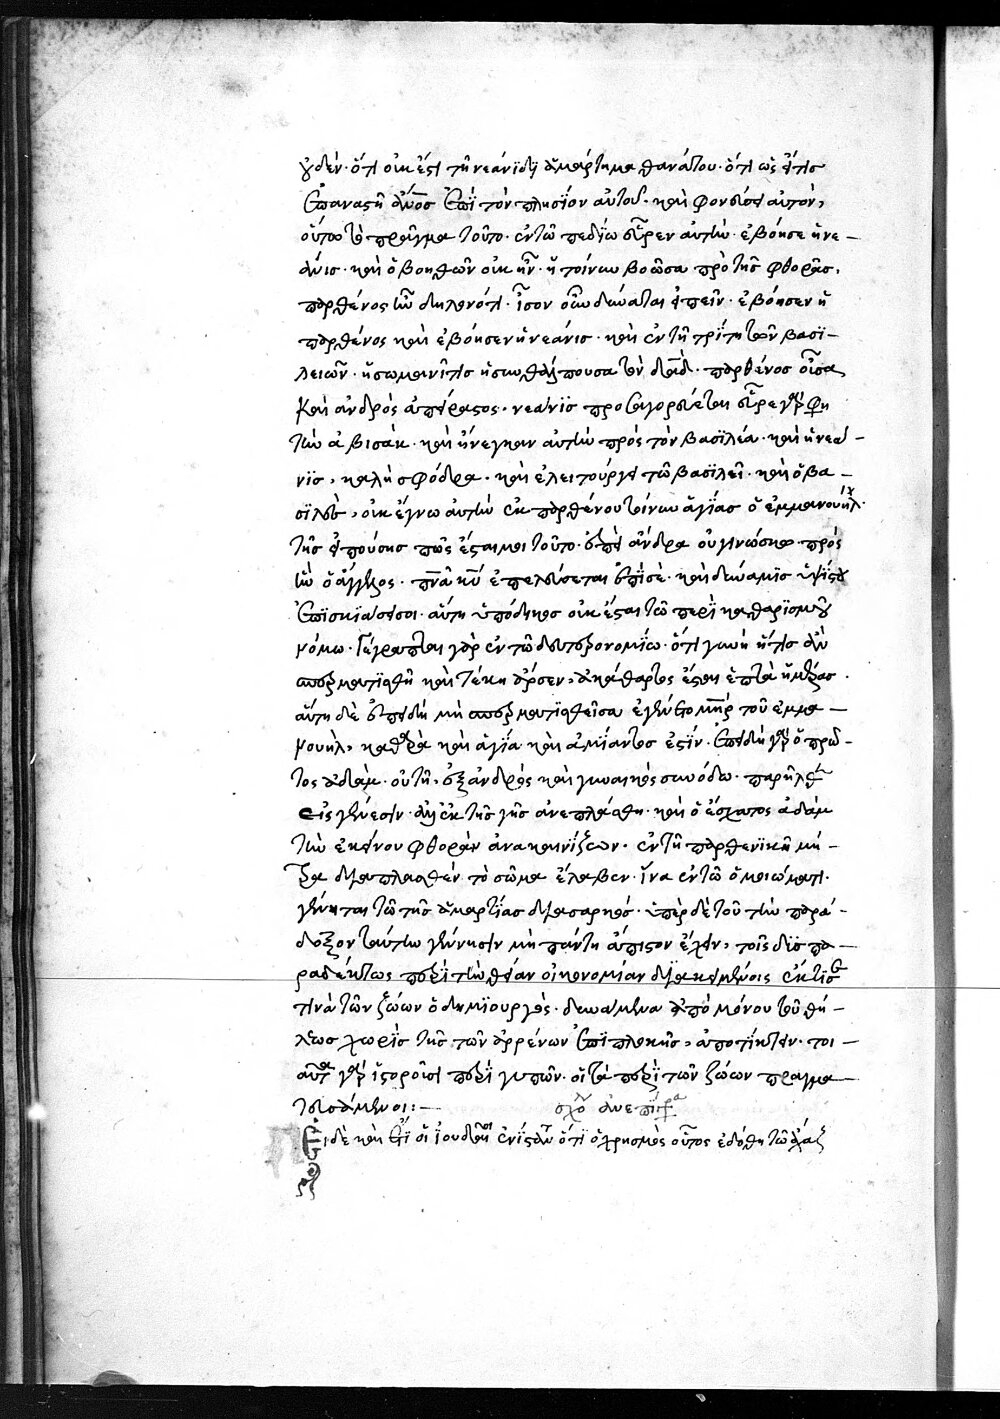 οὐδέν· ὅτι οὐκ ἔστι τῇ νεάνιδι ἁμάρτημα θανάτου· ὅτι ὡς εἴ τις
ἐπαναστῇ ἄνος ἐπὶ τὸν πλησίον αὐτοῦ· καὶ φονεύσει αὐτόν,
οὕτω τὸ πρᾶγμα τοῦτο· ἐν τῶ πεδίω εὗρεν αὐτήν· ἐβόησε ἡ νε–
ᾶνις· καὶ ὁ βοηθῶν οὐκ ἦν· ἡ τοίνυν βοῶσα πρὸ τῆς φθορᾶς,
παρθένος ἦν δηλονότι· ἴσον οὖν δύναται εἰπεῖν· ἐβόησεν ἡ
παρθένος καὶ ἐβόησεν ἡ νεάνις· καὶ ἐν τῆ τρίτη τῶν βασι–
λειῶν· ἡ σωμανῖτις ἡ συνθάλπουσα τὸν δαδ· παρθένος οὖσα,
καὶ ἀνδρὸς ἀπείραστος· νεᾶνις προσαγορεύεται εὗρε γὰρ φη
τὴν ἀβισάκ· καὶ ἤνεγκαν αὐτὴν πρὸς τὸν βασιλέα· καὶ ἡ νεα–
νις, καλὴ σφόδρα· καὶ ἐλειτούργει τῶ βασιλεῖ· καὶ ὁ βα–
σιλεὺς, οὐκ ἔγνω αὐτὴν ἐκ παρθένου τοίνυν ἁγίας ὁ ἐμμανουήλ·
τῆς εἰπούσης πῶς ἔσται μοι τοῦτο· ἐπεὶ ἄνδρα οὐ γινώσκω· πρὸς
ἣν ὁ ἄγγελος· πνα κυ ἐπελεύσεται ἐπὶ σὲ· καὶ δύναμις ὑψίστου
ἐπισκιάσει σοι· αὕτη ὑπόδικος οὐκ ἔσται τῶ περὶ καθαρισμοῦ
νόμω· Γέγραπται γὰρ ἐν τῶ δευτερονομίω· ὅτι γυνὴ ἥτις ἂν
σπερματισθῆ καὶ τέκη ἄρσεν, ἀκάθαρτος ἔσται ἑπτὰ ἡμέρας·
αὕτη δὲ ἐπειδὴ μὴ σπερματισθεῖσα ἐγένετο μηρ τοῦ ἐμμα–
νουὴλ, καθαρὰ καὶ ἁγία καὶ ἀμίαντος ἐστίν· ἐπειδὴ γὰρ ὁ πρῶ–
τος ἀδὰμ· οὔτι, ἐξ ἀνδρὸς καὶ γυναικὸς συνόδω· παρῆλθεν
εἰς γένεσιν· ἀλλ' ἐκ τῆς γῆς ἀνεπλάσθη· καὶ ὁ ἔσχατος ἀδάμ
τὴν ἐκείνου φθορὰν ἀνακαινίζων· ἐν τῆ παρθενικῆ μή–
τρα διαπλασθὲν τὸ σῶμα ἔλαβεν· ἵνα ἐν τῶ ὁμοιώματι·
γένηται τῶ τῆς ἁμαρτίας διὰ σαρκός· ὑπὲρ δὲ τοῦ τὴν παρά–
δοξον ταύτην γέννησιν μὴ πάντη ἄπιστον ἔχειν, τοῖς δισπα–
ραδέκτως περὶ τὴν θείαν οἰκονομίαν διακειμένοις ἔκτισε
τινὰ τῶν ζώων ὁ δημιουργός· δυνάμενα ἀπὸ μόνου τοῦ θή–
λεως χωρὶς τῆς τῶν ἀρρένων ἐπιπλοκῆς, ἀποτίκτειν· τοι–
αῦτα γὰρ ἱστοροῦσι περὶ γυπῶν· οἱ τὰ περὶ τῶν ζώων πραγμα–
τευσάμενοι:–
σχο ἀνεπίγρα
Εἰ δὲ καὶ ἔτι οἱ ἰουδαῖοι ἐνίστανται ὅτι ὁ χρησμὸς οὗτος ἐδόθη τῶ ἄχαζ